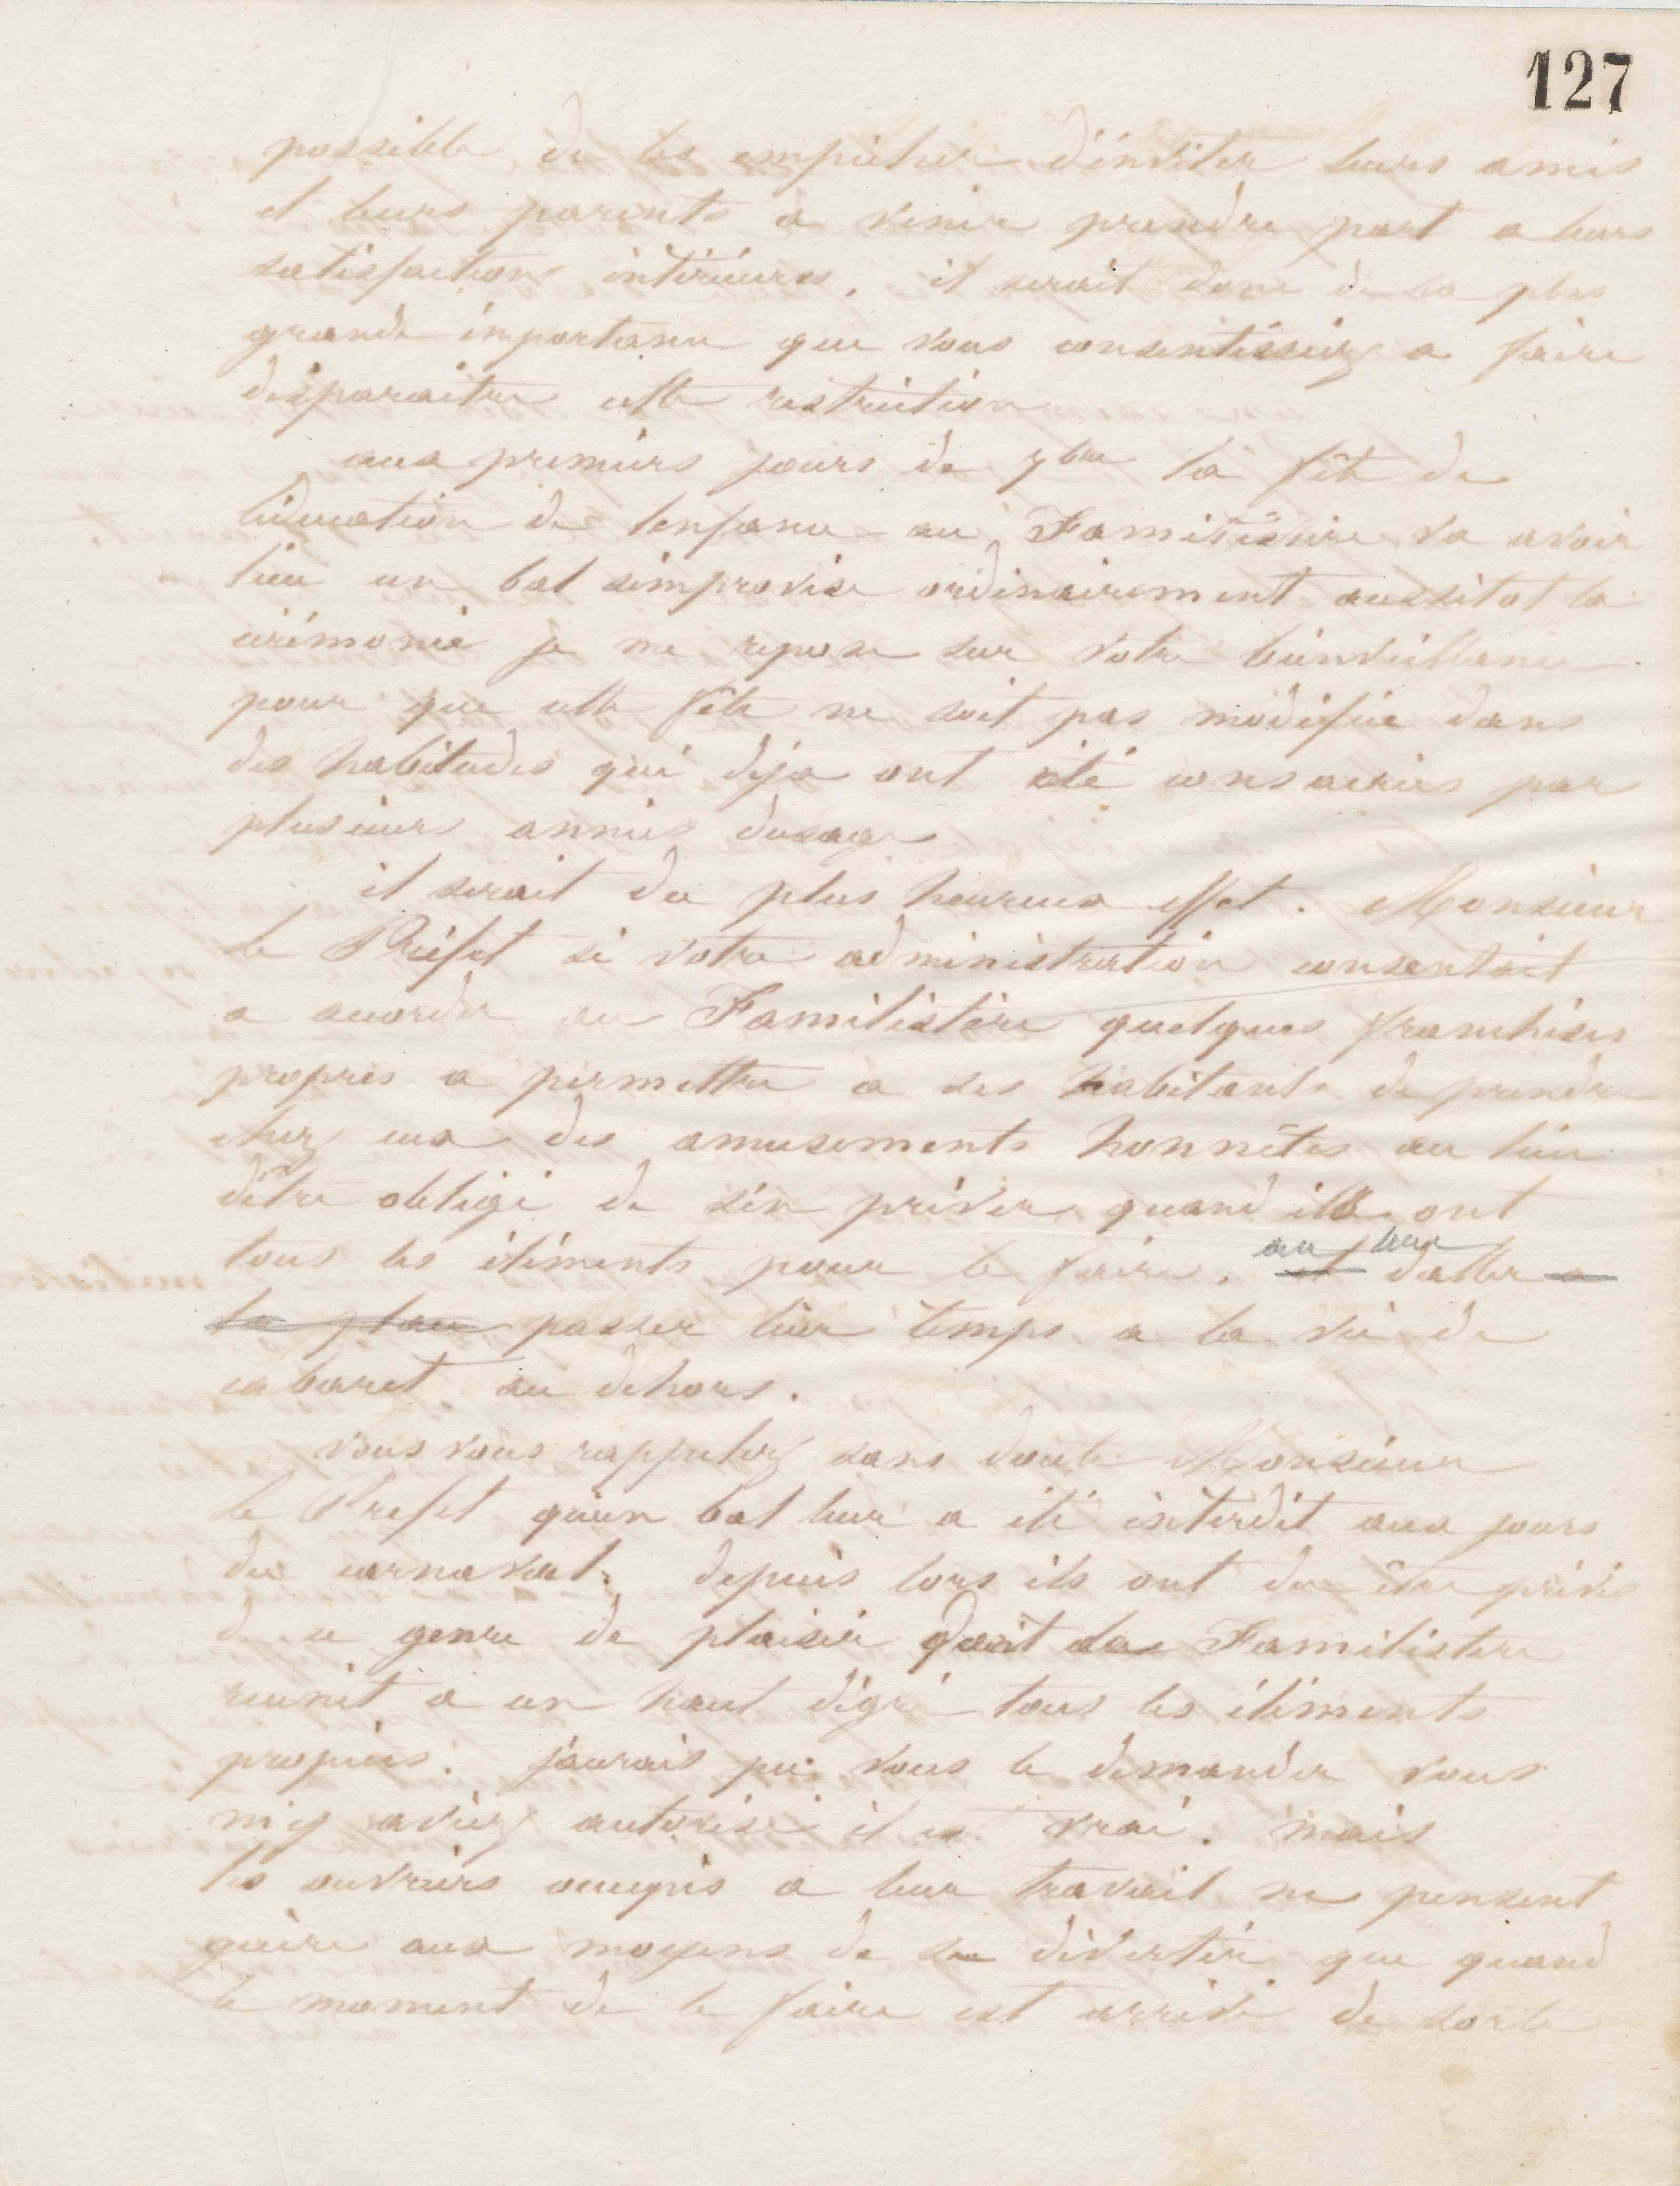 127
possible de les empêcher d'inviter leurs amis
et leurs parents a venir prendre part a leurs
satisfactions intérieures. il serait donc de la plus
grande importance que vous consentissiez a faire
disparaitre cette restriction
aux premiers jours de 7bre la fête de
léducation de lenfance au Familistère va avoir
lieu un bal simprovise ordinairement aussitot la
cérémonie je me repose sur votre bienveillance
pour que cette fête ne soit pas modifiée dans
des habitudes qui déja ont été consacrées par
plusieurs années dusage
il serait du plus heureux effet. Monsieur
le Préfet si votre administration consentait
a accorder au Familistère quelques franchises
propres a permettre a ses habitants de prendre
chez eux des amusements honnêtes au lieu
dêtre obligé de sén priver quand ils ont
tous les éléments pour le faire. et au leur daller a
la place passer leur temps a la vie de
cabaret au dehors.
vous vous rappelez sans doute Monsieur
le Prefet quun bal leur a été interdit aux jours
du carnaval. depuis lors ils ont du être privés
de ce genre de plaisir dont le Familistere
reunit a un haut dégré tous les éléments
propices. jaurais pu vous le demander vous
m'y aviez autorisé il est vrai. mais
les ouvriers occupés a leur travail ne pensent
guère aux moyens de se divertir que quand
le moment de le faire est arrivé de sorte